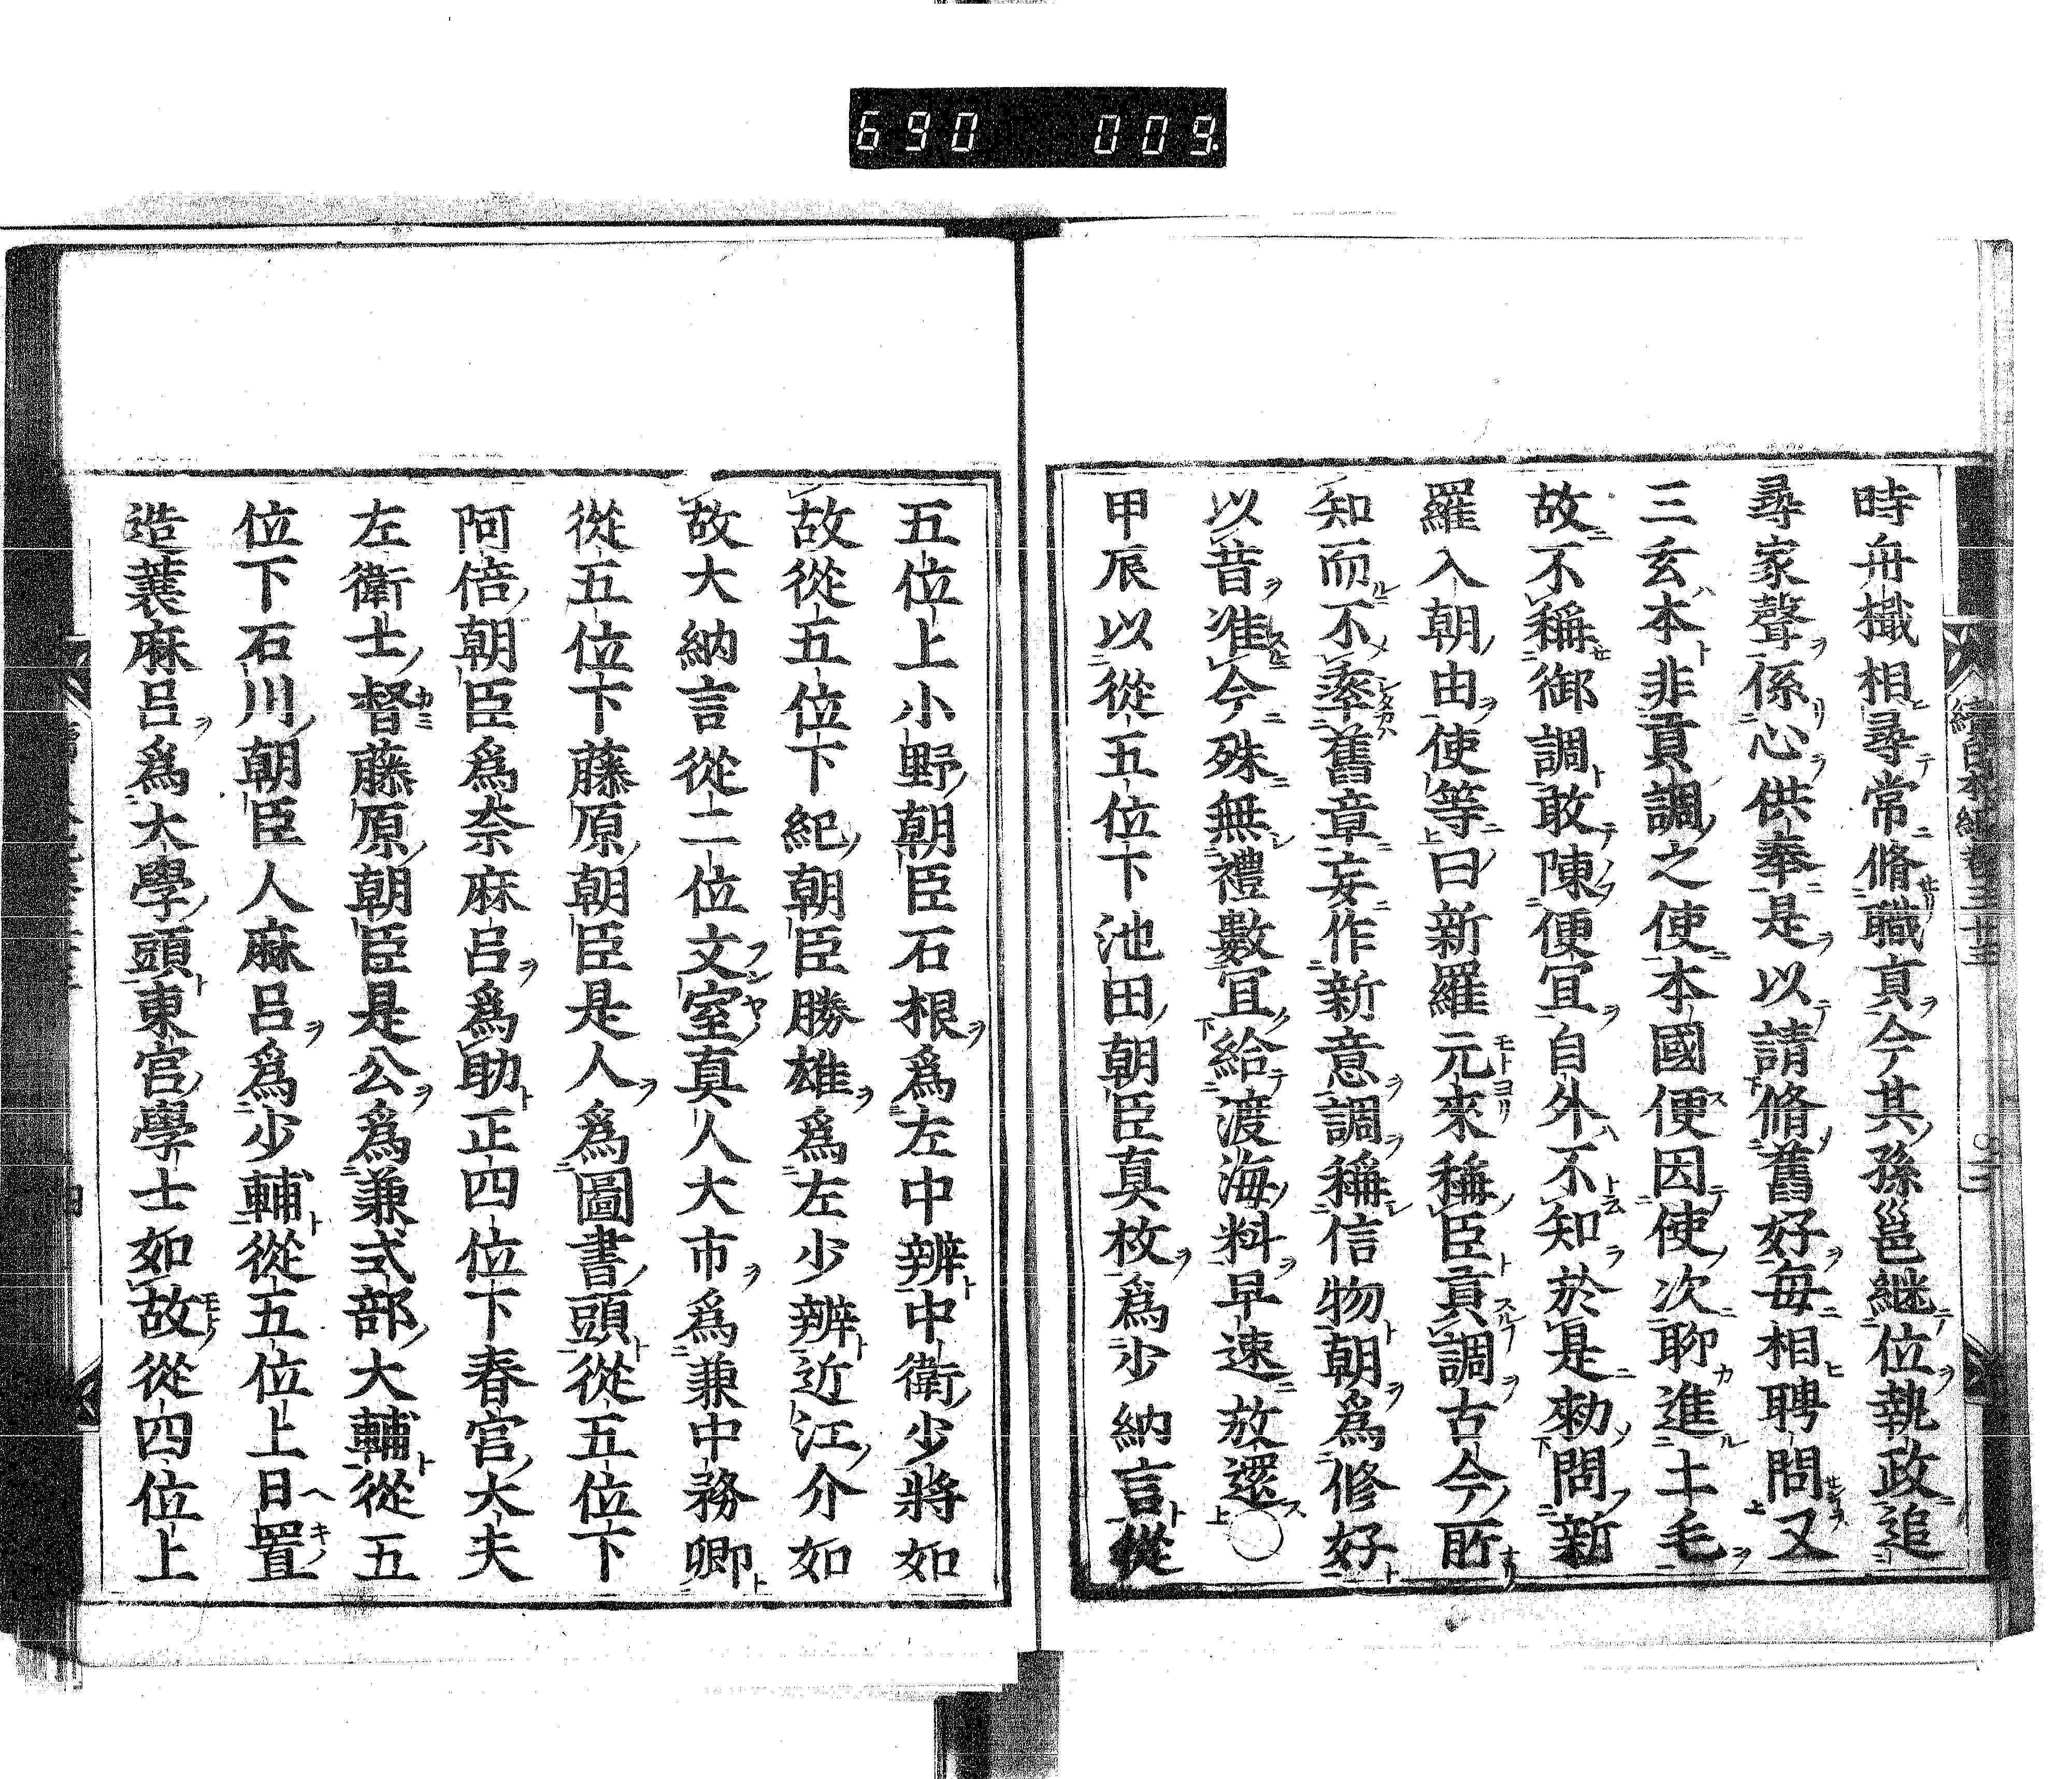 690 009.
時舟檝相尋常脩職貢今其孫邕継位執政追
尋家聲係心供奉是以請脩舊好毎相聘問又
三玄本非貢調之使本國便因使次聊進土毛
故不稱御調敢陳便冝自外不知於是勑問新
羅入朝由使等曰新羅元來稱臣貢調古今所
知而不率舊章妄作新意調稱信物朝爲修好
以昔准今殊無禮數冝給渡海料早速放還○
甲辰以從五位下池田朝臣真枚爲少納言從
五位上小野朝臣石根爲左中辨中衛少將如
故從五位下紀朝臣勝雄爲左少辨近江介如
故大納言從二位文室真人大市爲兼中務卿
從五位下藤原朝臣是人爲圖書頭從五位下
阿倍朝臣爲奈麻呂爲助正四位下春宮大夫
左衛士督藤原朝臣是公爲兼式部大輔從五
位下石川朝臣人麻呂爲少輔從五位上日置
造蓑麻呂爲大學頭東宮學士如故從四位上